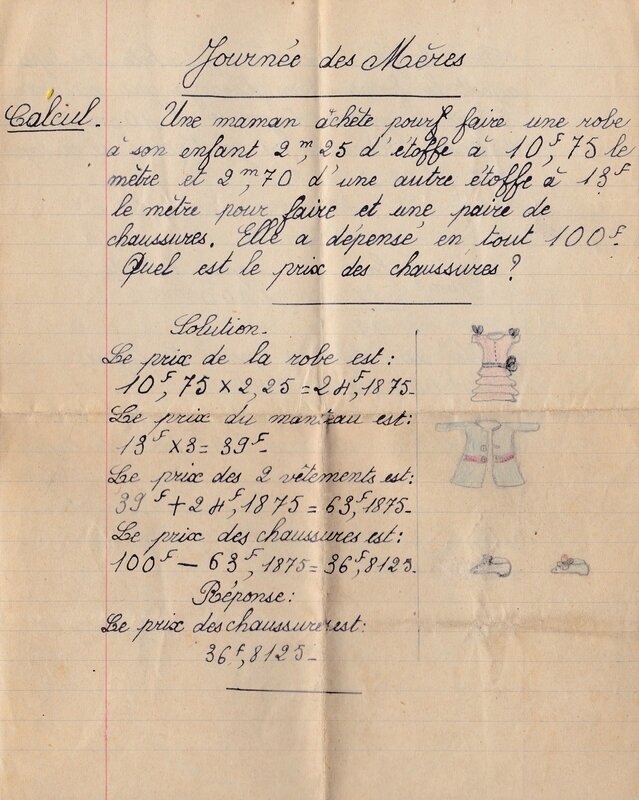 Journée des Mères
Calcul. Une maman achète pour faire une robe
à son enfant 2m,25 d'étoffe à 10F,75 le
mètre et 2m,70 d'une autre étoffe à 13F
le mètre pour faire et une paire de
chaussures. Elle a dépensé en tout 100F.
Quel est le prix des chaussures ?
Solution.
Le prix de la robe est :
10F,75 × 2,25 = 24F,1875.
Le prix du manteau est :
13F × 3 = 39F.
Le prix des 2 vêtements est :
39F + 24F,1875 = 63F,1875.
Le prix des chaussures est :
100F – 63F,1875 = 36F,8125.
Réponse :
Le prix des chaussures est :
36F,8125.